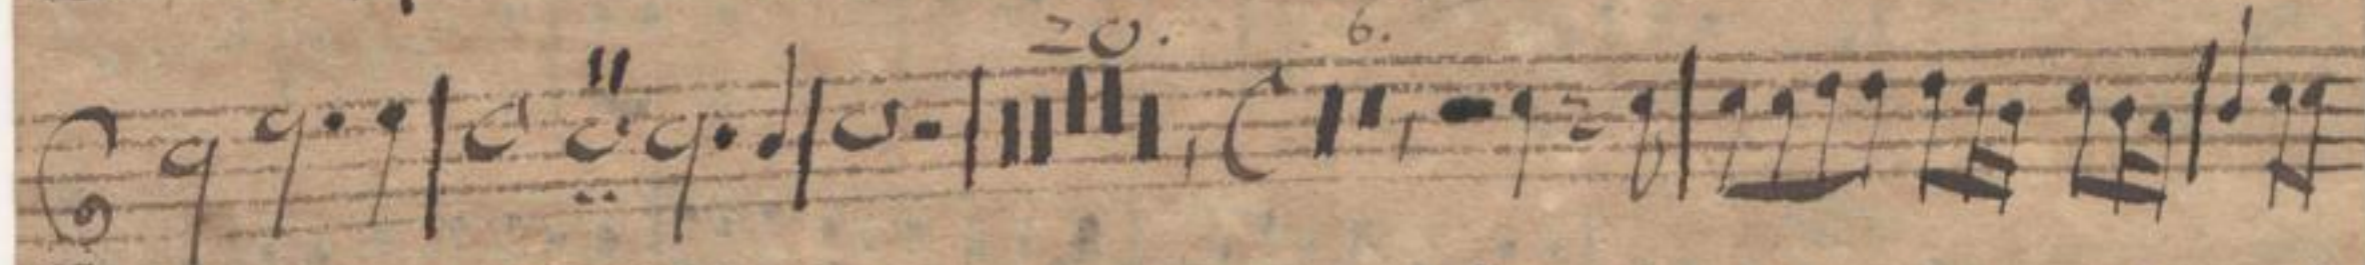 20. 6.